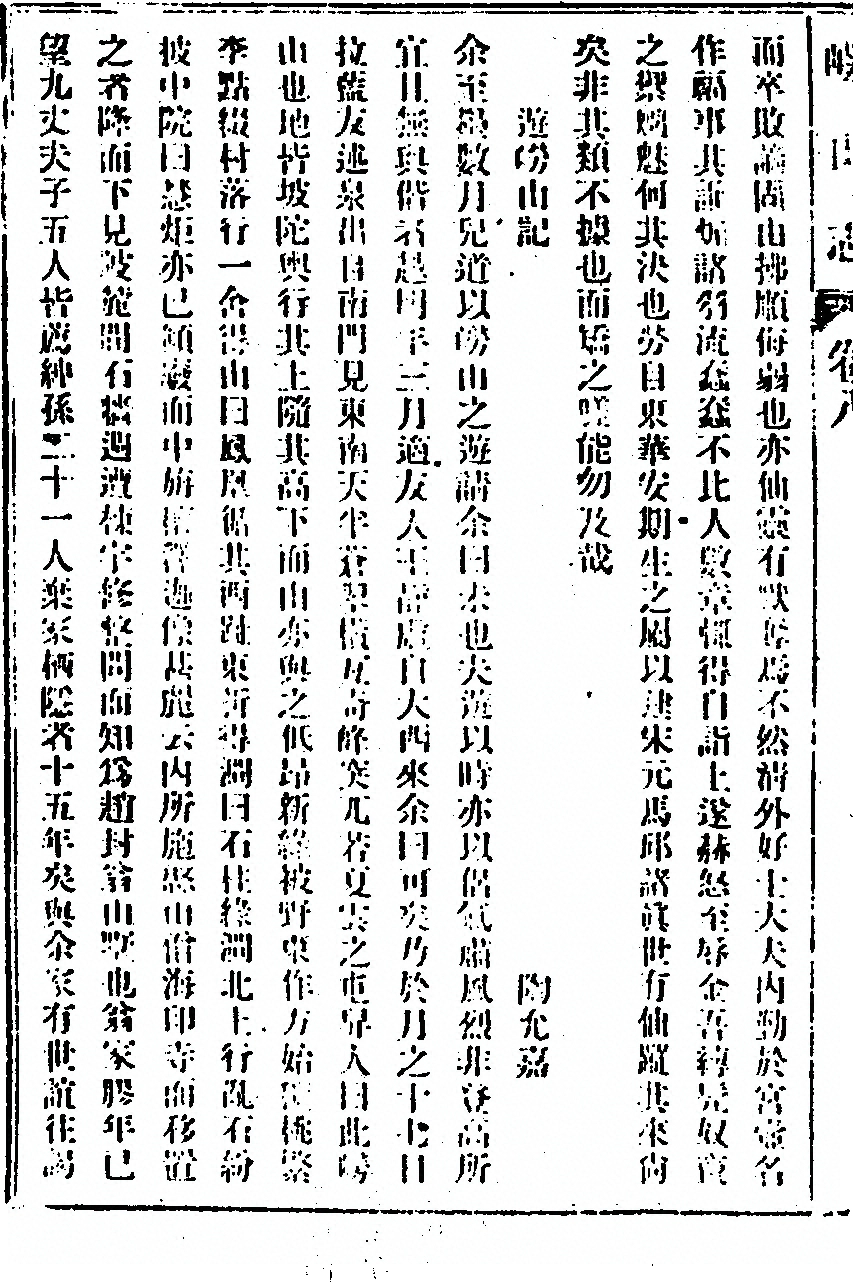 嶗山志 卷八
而卒敗謫固由拂順侮弱也亦仙靈有獸焉不然清外好士大夫內勤於宮壼名
作福事其詬妬諸劣流蠢蠢不比人數幸何得自詣上遂赫怒至辱金吾縛兄奴
之禦魑魅何其決也勞自東華安期生之屬以逮宋元馬邱諸眞世有仙蹤其來尚
矣非其類不據也而矯之 能勿及哉
遊嶗山記 陶允嘉
余至 數月兒道以嶗山之遊請余曰未也夫遊以時亦以侶氣肅風烈非登高所
宜且無與偕者越明年三月適友人王靜虛自大西來余曰可矣乃於月之十七日
拉藍友述泉出自南門見東南天半蒼翠橫亙奇峰突兀若夏雲之屯舁人曰此嶗
山也地皆坡陀輿行其上隨其高下而山亦與之低昂新綠被野東作方始 桃 
李點綴村落行一舍得山曰鳳凰循其西趾東折得澗曰石柱緣澗北上行亂石紛
披中院曰慧炬亦已頹廢而中旃檀釋迦像甚麗云內所施憨山僧海印寺而移置
之者降而下見坡 間石牆週遭棟宇修整問而知爲趙封翁山墅也翁家膠年已
望九丈夫子五人皆薦紳孫二十一人棄家栖隱者十五年矣與余家有世誼往謁